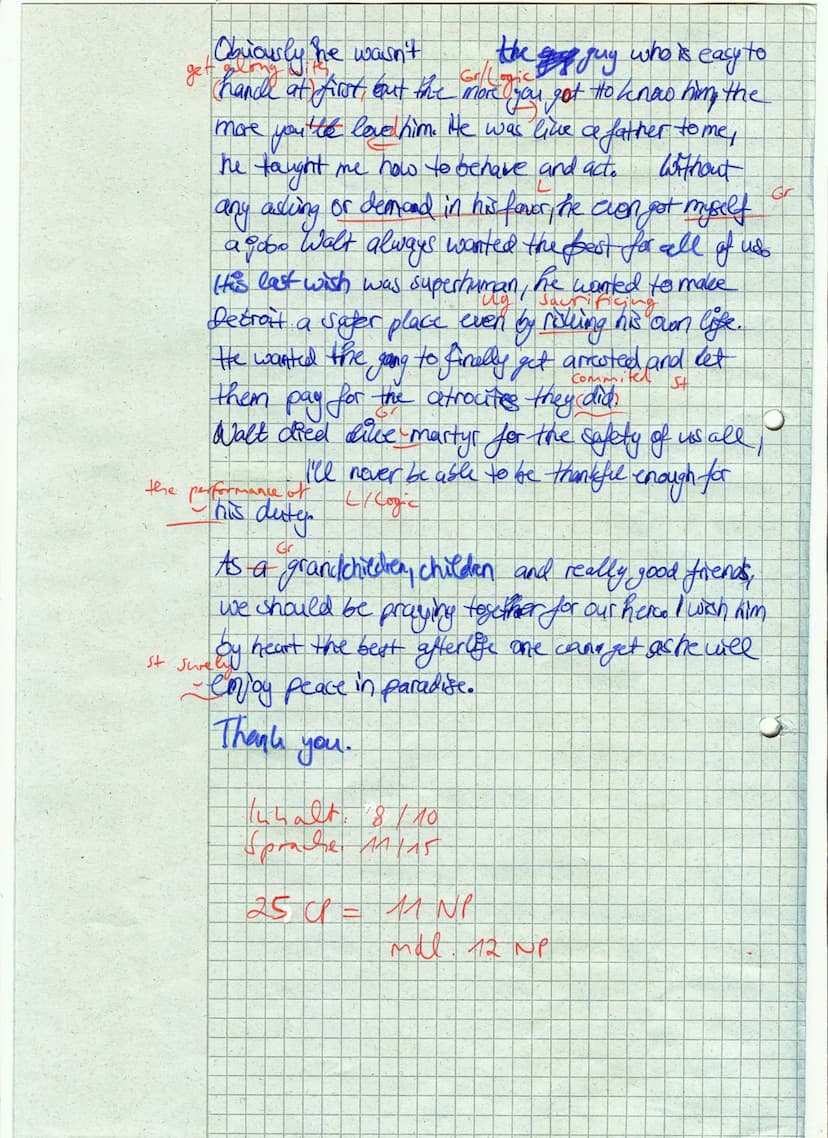 Obviously he wasn't the guy who is easy to
get along with Gr/Logic
(handle at) first, but the more you got to know him, the
more you'll loved him. He was like a father to me,
he taught me how to behave and act. Without
L Gr
any asking or demand in his favor, he even got myself
a job. Walt always wanted the best for all of us.
His last wish was superhuman, he wanted to make
sacrificing
Detroit a safer place even by risking his own life.
He wanted the gang to finally get arrested and let
commited st
them pay for the atrocities they (did)
Gr
Walt died like martyr for the safety of us all,
I'll never be able to be thankful enough for
the performance of L/Logic
his duty.
Gr
As a grandchildren, children and really good friends,
we should be praying together for our hero. I wish him
by heart the best afterlife one can get as he will
st surely
enjoy peace in paradise.
Thank you.
Inhalt: 8/10
Sprache: 11/15
25 CP = 11 NP
mdl. 12 NP